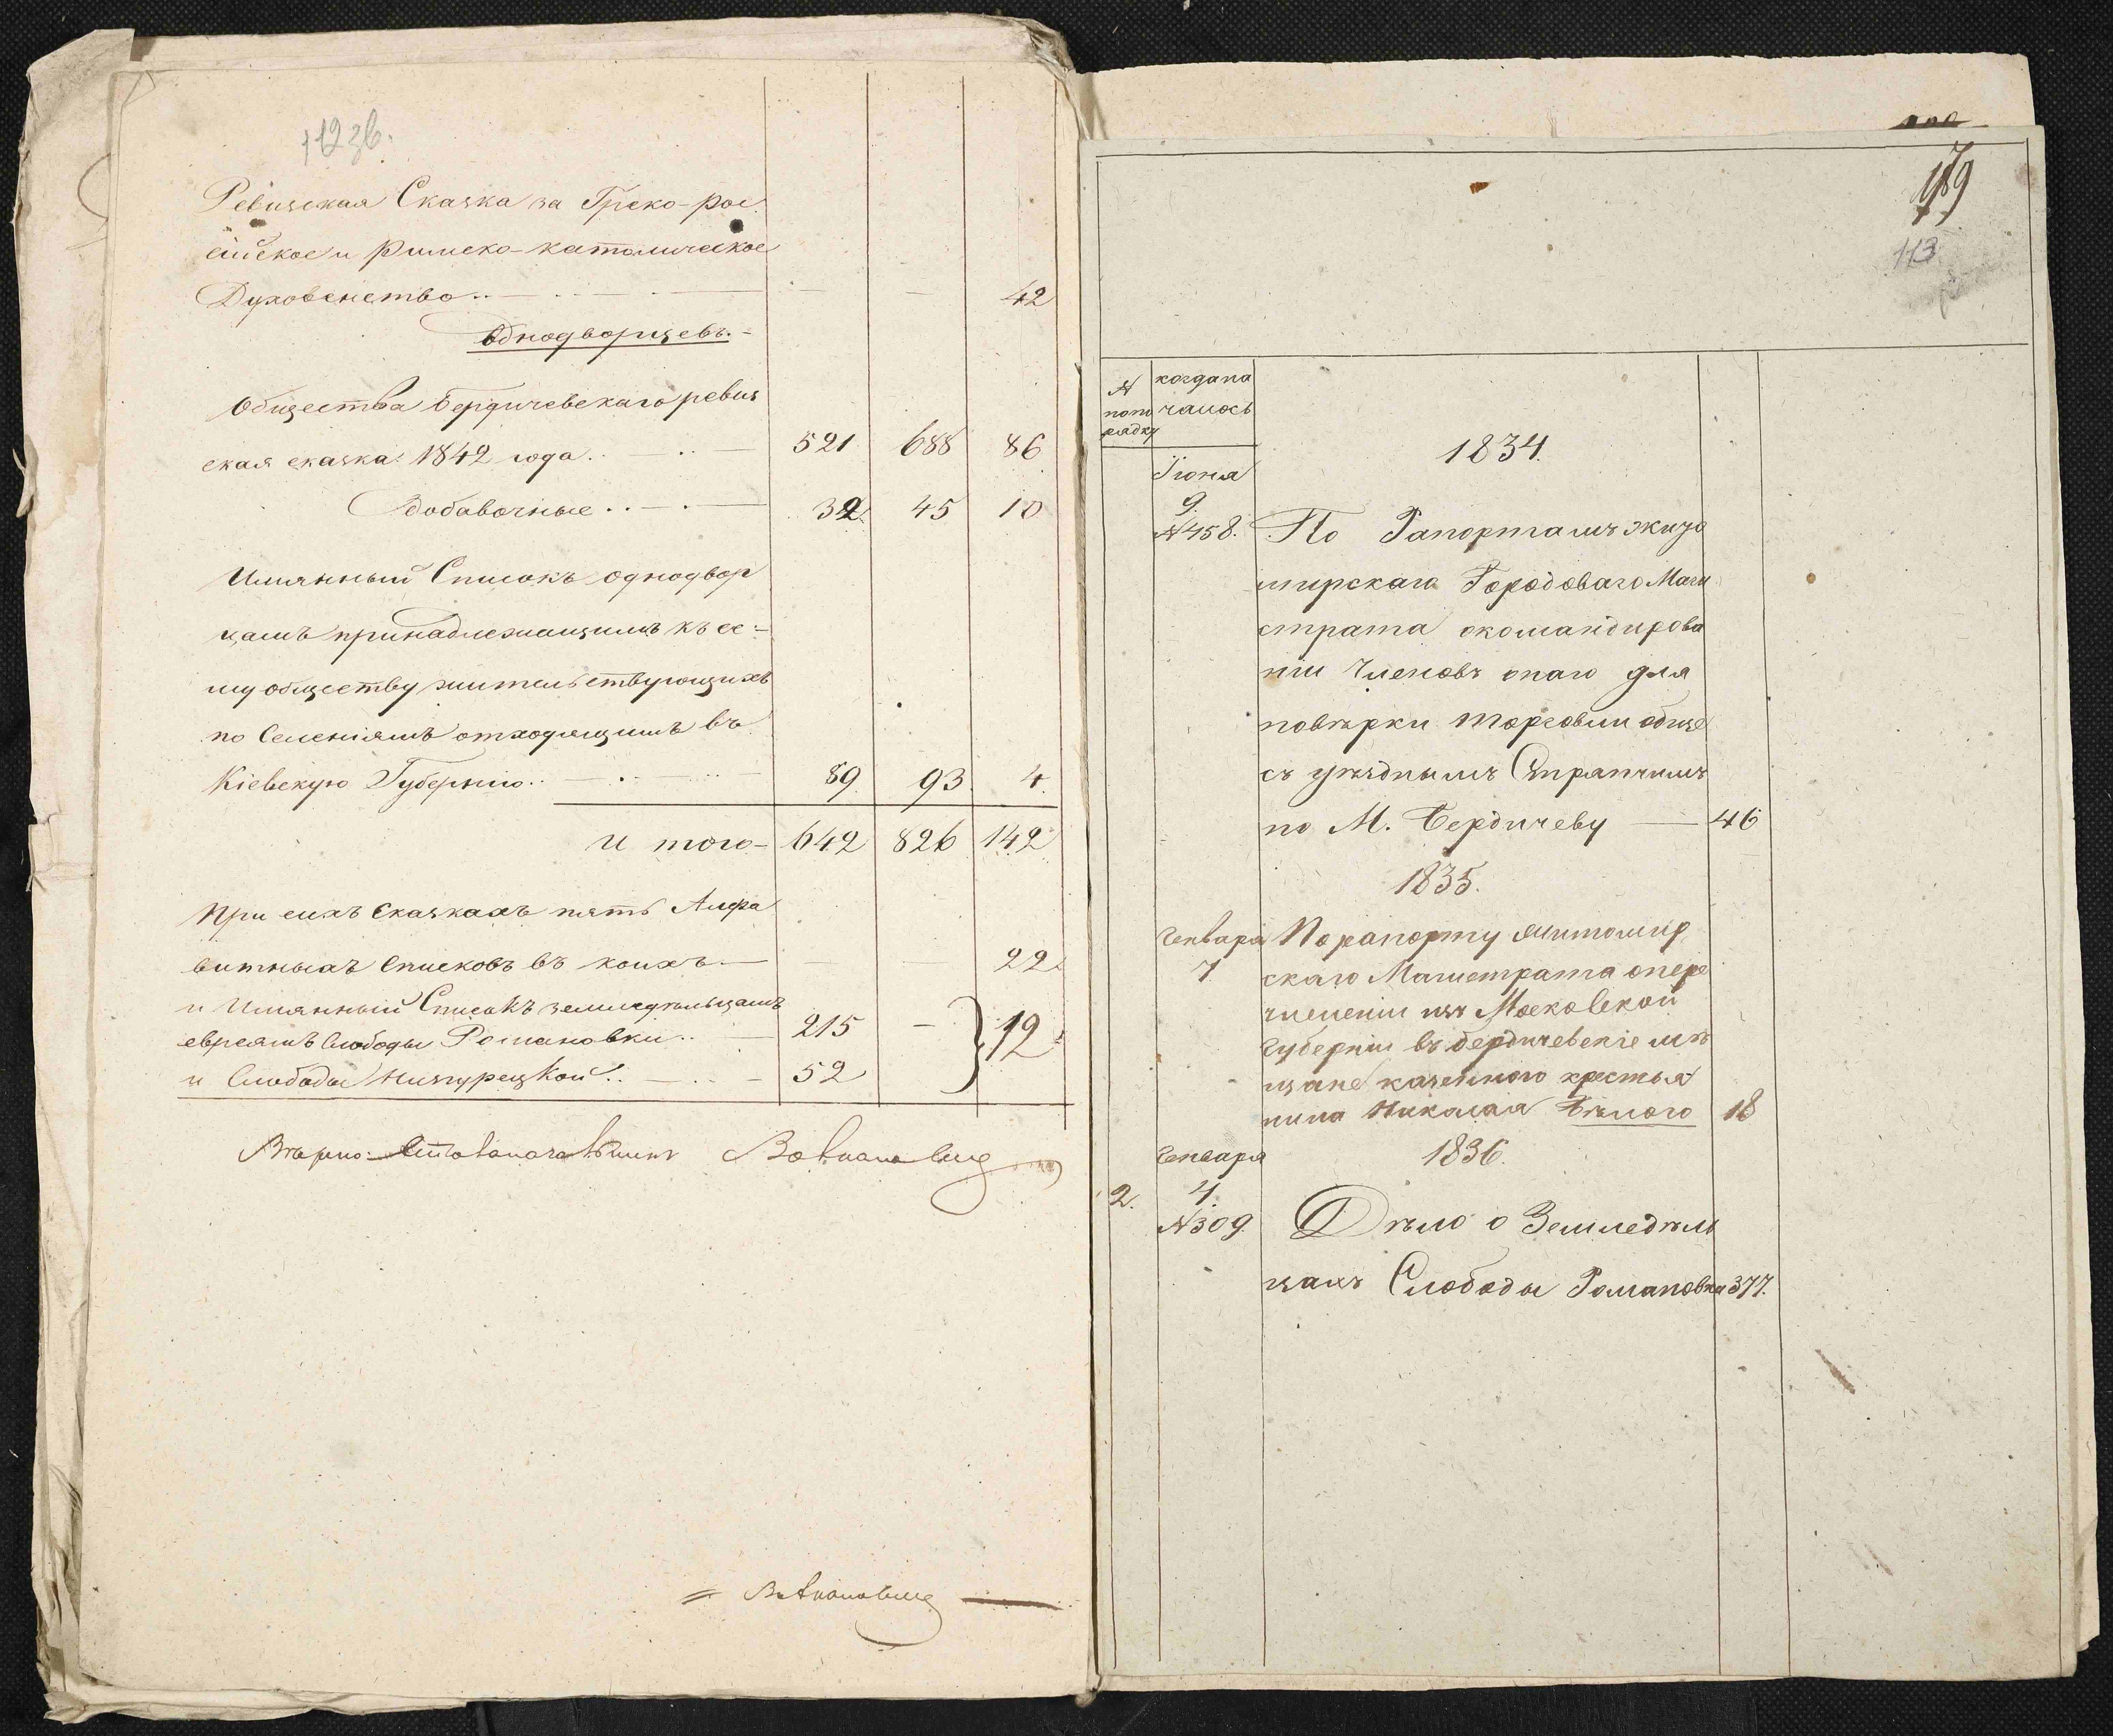 112 зв.
Ревизская Сказка за Греко-рос
сійское и Римско-католическое
Духовенство..— — 42
Однодворцевъ.-
Общества Бердичевскаго ревиз
ская сказка 1842 года.. — 521 688 86
добавочные..—.— 32 45 10
Имянный Списокъ однодвор
цамъ принадлежащимъ къ се=
му обществу жительствующихъ
по Селеніямъ отходящимъ въ
Кіевскую Губернію.. — 89 93. 4.
И того- 642 826 142
При сихъ Сказкахъ пять Алфа
витныхъ Списковъ въ коихъ.— 22.
и Имянный Списокъ земледѣльцамъ
евреямъ Слободы Романовки.. — 215 — 12
и Слободы Низгурецкой.. — 52
Вѣрно:
179
113
№ по по рядку
когда на чалось
1834.
Іюня
9.
№458. По Рапортамъ жито
мирскаго Городоваго Маги
страта окомандирова
ніи Членовъ онаго для
повѣрки торговли обще
съ уѣзднымъ Стряпчимъ
по М. Бердичеву — 46
1835.
Генваря По рапорту житомир
7. скаго Магистрата опере
численіи изъ Московской
Губерніи въ бердичевскіе мѣ
щане казенного крестья
нина Николая Бѣлого 18
Генваря 1836.
2. 4.
№309. Дѣло о Земледѣль
цахъ Слободы Романовки 377.